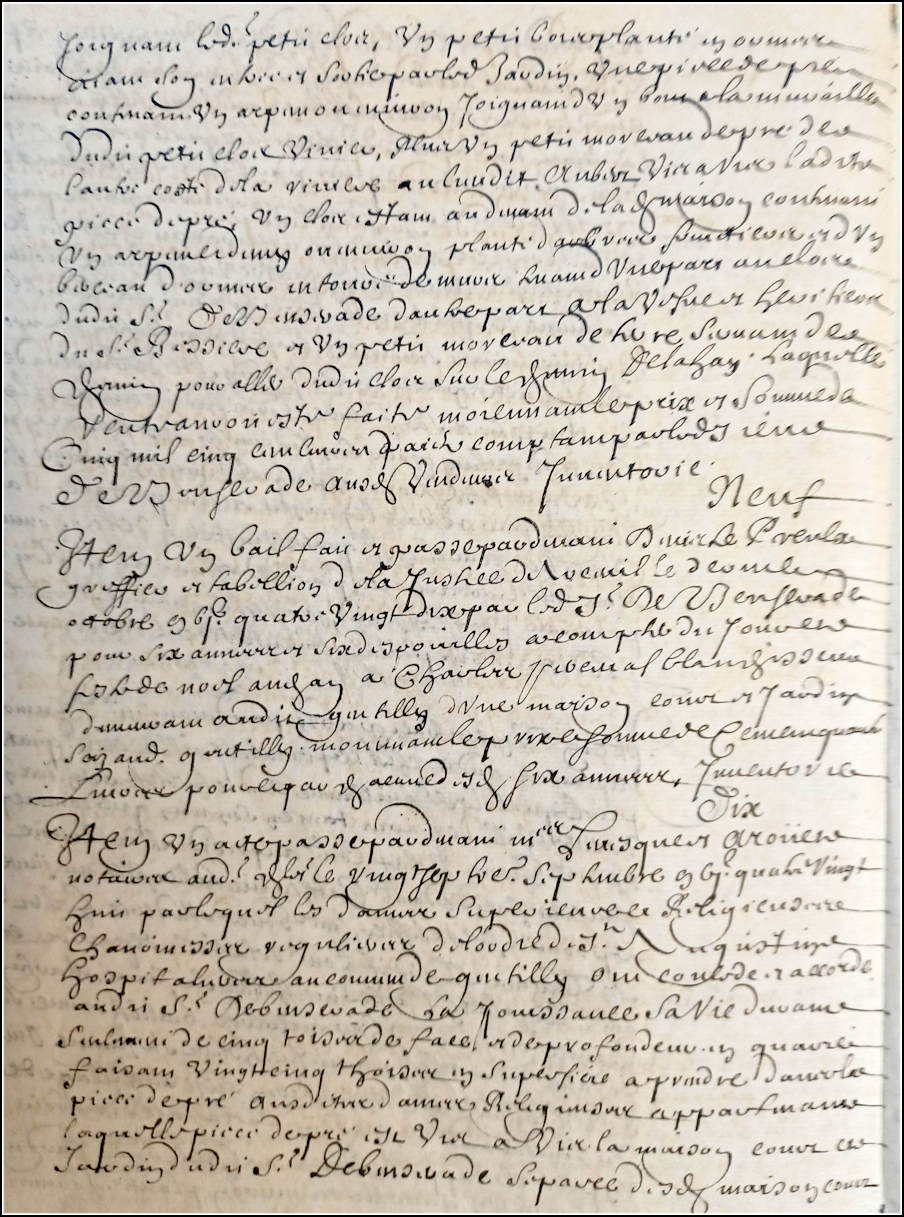 Joignant led.^t petit clos, Un petit bois planté en ormes
estant son enceos et Sortie par led Jardin, Une piece de pré
contenant Un arpent ou environ Joignant d'Un bout a la muraille
dudit petit clos Viviers, Plus Un petit morceau de pré de
l'autre costé de la riviere au lieudit Vis a Vis ladite
piece de pré, Un clos estant au devant de lad maison contenant
Un arpent et demy ou environ planté d'arbres fruitiers et d'Un
berceau d'ormes entouré de murs tenant d'Une part au clos
dudit S.^r De Benserade d'autre part a la Vefve et heritiers
du S.^r Bessiere et Un petit morceau de terre Servant de
chemin pour aller dudit clos Sur le chemin De Lahay Laquelle
Vente avoit esté faite moiennant le prix et Somme de
Cinq mil cinq cent livres paiée comptant par led Sieur
De Benserade ausd Vendeurs Inventorié
Neuf
Item Un bail fait et passé pardevant le
greffier et tabellion de la Justice de le
octobre g bj.^c quatre Vingt dix par led S.^r De Benserade
pour Six années et Six despouilles a compter du Jour et
feste de noel aud an a Charles blanchisseur
demeurant audit gentilly d'Une maison cour et Jardin
Seiz aud. gentilly moiennant le prix et Somme de Cent cinquante
Livres pour chacune desd Six années, Inventorié
Dix
Item Un acte passé pardevant m^es Levesque et Aroüere
notaires aud.^t ch.^let le Vingt Sept.^e Septembre g bj.^c quatre Vingt
huit par lequel les dames Superieure et Religieuses
Chanoinesses regulieres de l'ordre de S.^t Augustin
Hospitalieres au couvent de gentilly ont concedé et accordé
audit S.^r De benserade La Jouissance Sa Vie durant
Seulement de cinq toises de face, et de profondeur en quarré
faisant Vingt cinq thoises en Superficie a prendre dans la
piece de pré ausdites dames Religieuses appartenante
laquelle piece de pré est Vis a Vis la maison cour et
Jardin dudit S.^r De benserade Separée desd maison cour